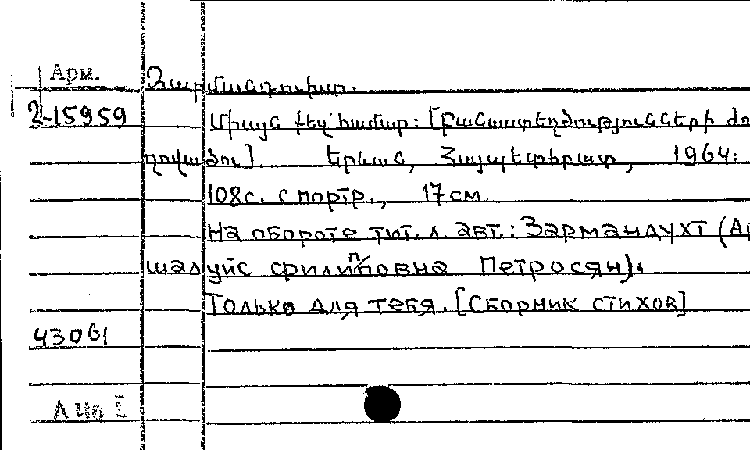 Арм.
Զարմանդուխտ.
2-15959
Միայն քեզ համար: [Բանաստեղծությունների ժո
ղովածու]. Երևան, Հայպետհրատ, 1964:
108с. с портр., 17см
На обороте тит. л. авт.: Зармандухт (Ар
шалуйс Филипповна Петросян).
Только для тебя. [Сборник стихов]
43061